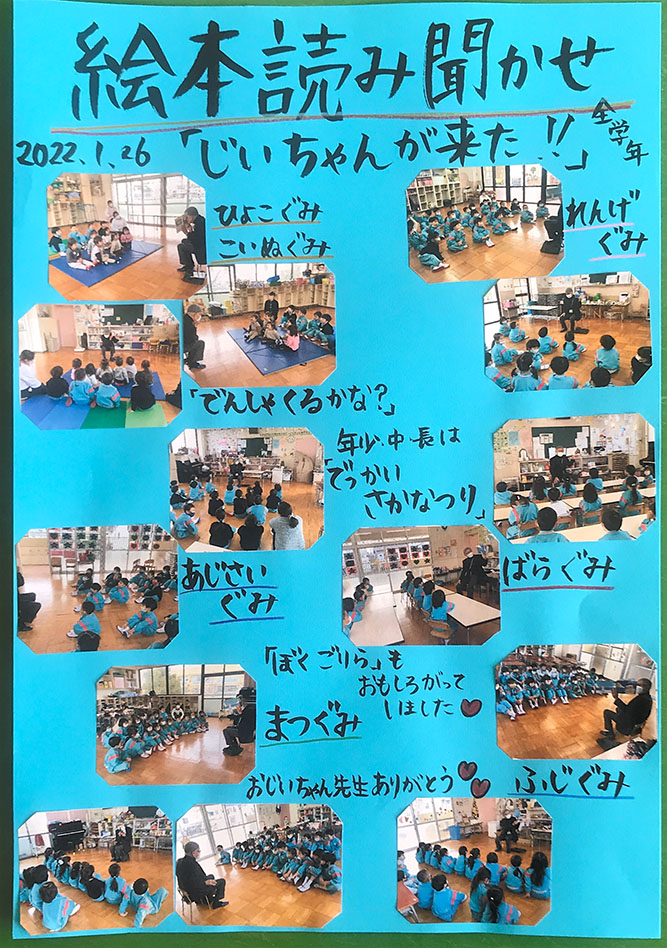 絵本読み聞かせ
2022.1.26
「じいちゃんが来た!!」
全学年
ひよこぐみ
こいぬぐみ
れんげ
ぐみ
「でんしゃくるかな？」
年少・中・長は
「でっかい
さかなつり」
あじさい
ぐみ
ばらぐみ
「ぼくごりら」も
おもしろがって
いました
まつぐみ
おじいちゃん先生ありがとう
ふじぐみ